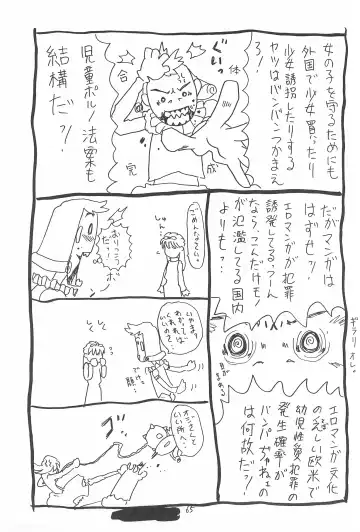 女の子を守るためにも
外国で少女買ったり
少女誘拐したりする
ヤツはバンバンつかまえ
ろ!
児童ポルノ法案も
結構だ?!
ぐいっ
合
体
完
成
だがマンガは
はずせッ!
エロマンガが犯罪
誘発してるっつーん
なら、こんだけエロ
が氾濫してる国内
よりも?!
ギョリ
オレ。
エロマンガ文化
の乏しい欧米で
幼児性愛犯罪の
発生確率が
バンパじゃねェの
は何故だ?!
ごめんなさい。
しゅん
おりこうっ
だ!
いやまっ
わかって
くれれば
いいっス。
オジさんと
いい所へ
65